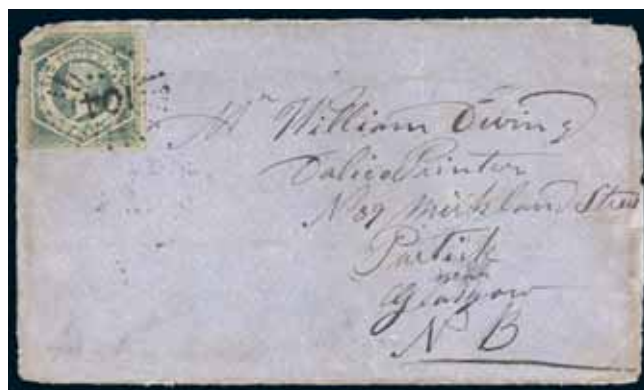 104
Mr William Ewing
Calico Printer
No 9 Muirkland Street
Partick
near
Glasgow
N B